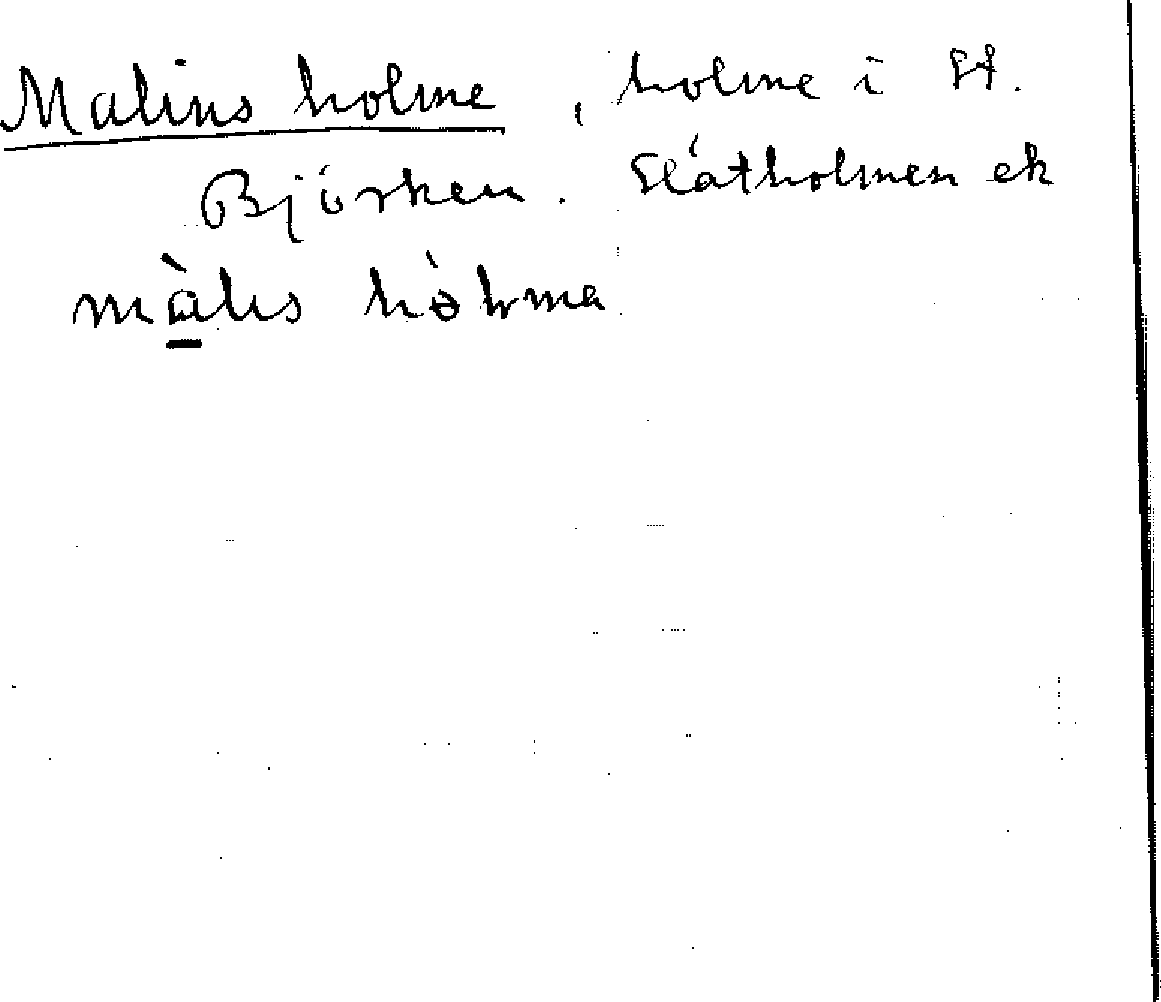 Malins holme, holme i St.
Björken. Slåtholmen ek
màlıs hòlma